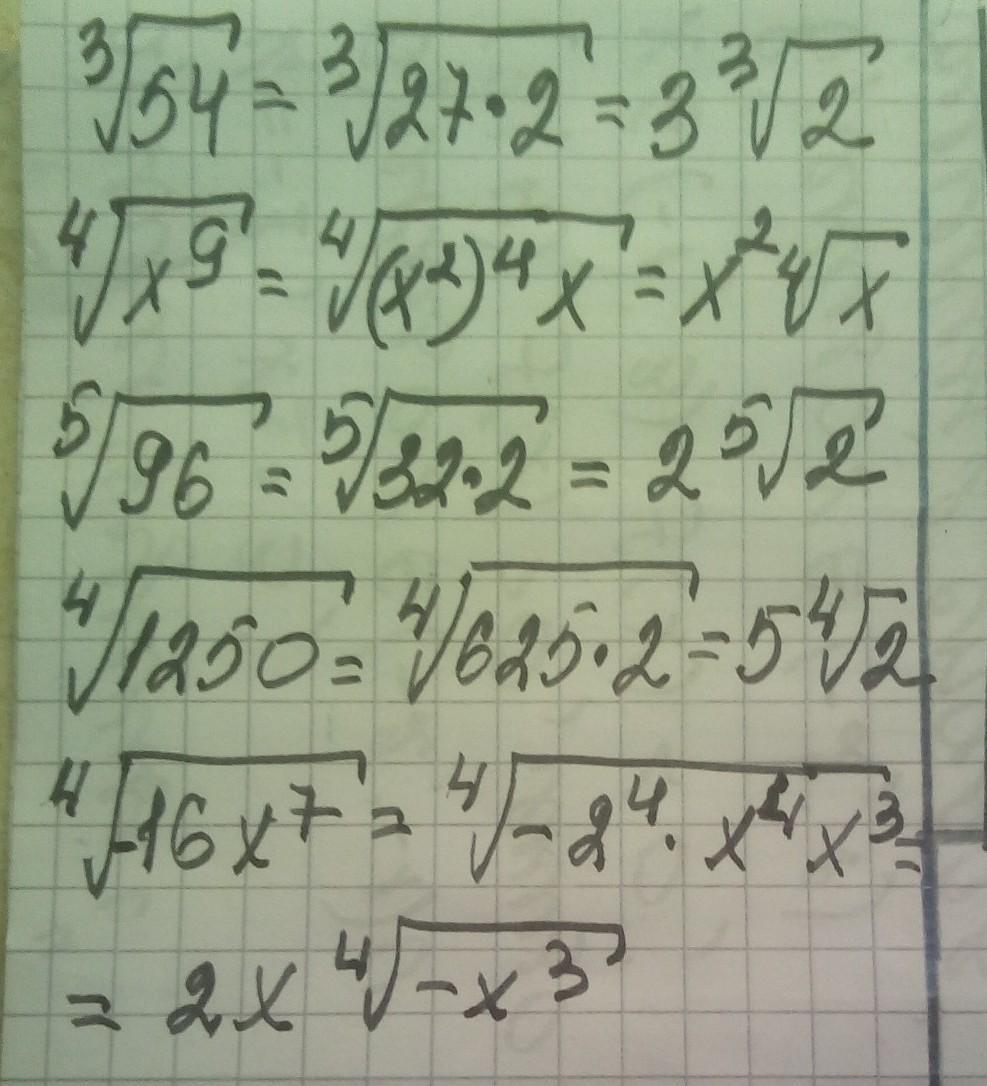 ∛54 = ∛27·2 = 3 ∛2
∜x⁹ = ∜(x²)⁴x = x² ∜x
⁵√96 = ⁵√32·2 = 2 ⁵√2
∜1250 = ∜625·2 = 5 ∜2
∜-16x⁷ = ∜-2⁴·x⁴x³ =
= 2x ∜-x³